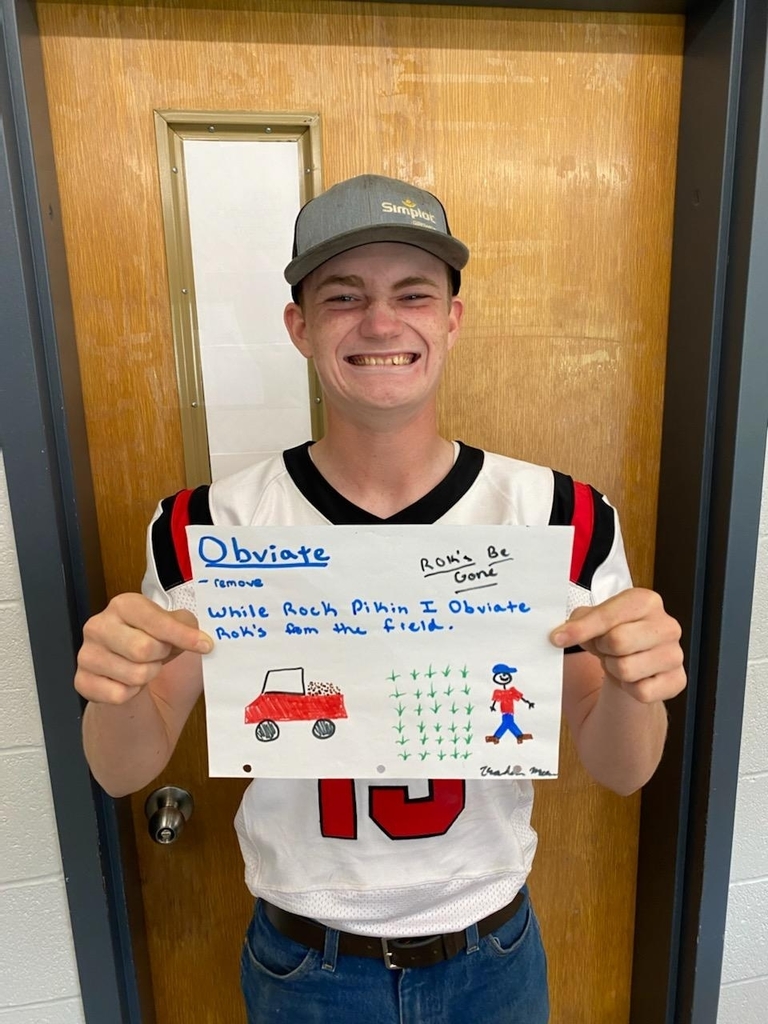 Simplot
Obviate
- remove
Rok's Be
Gone
While Rock Pikin I Obviate
Rok's fom the field.
13